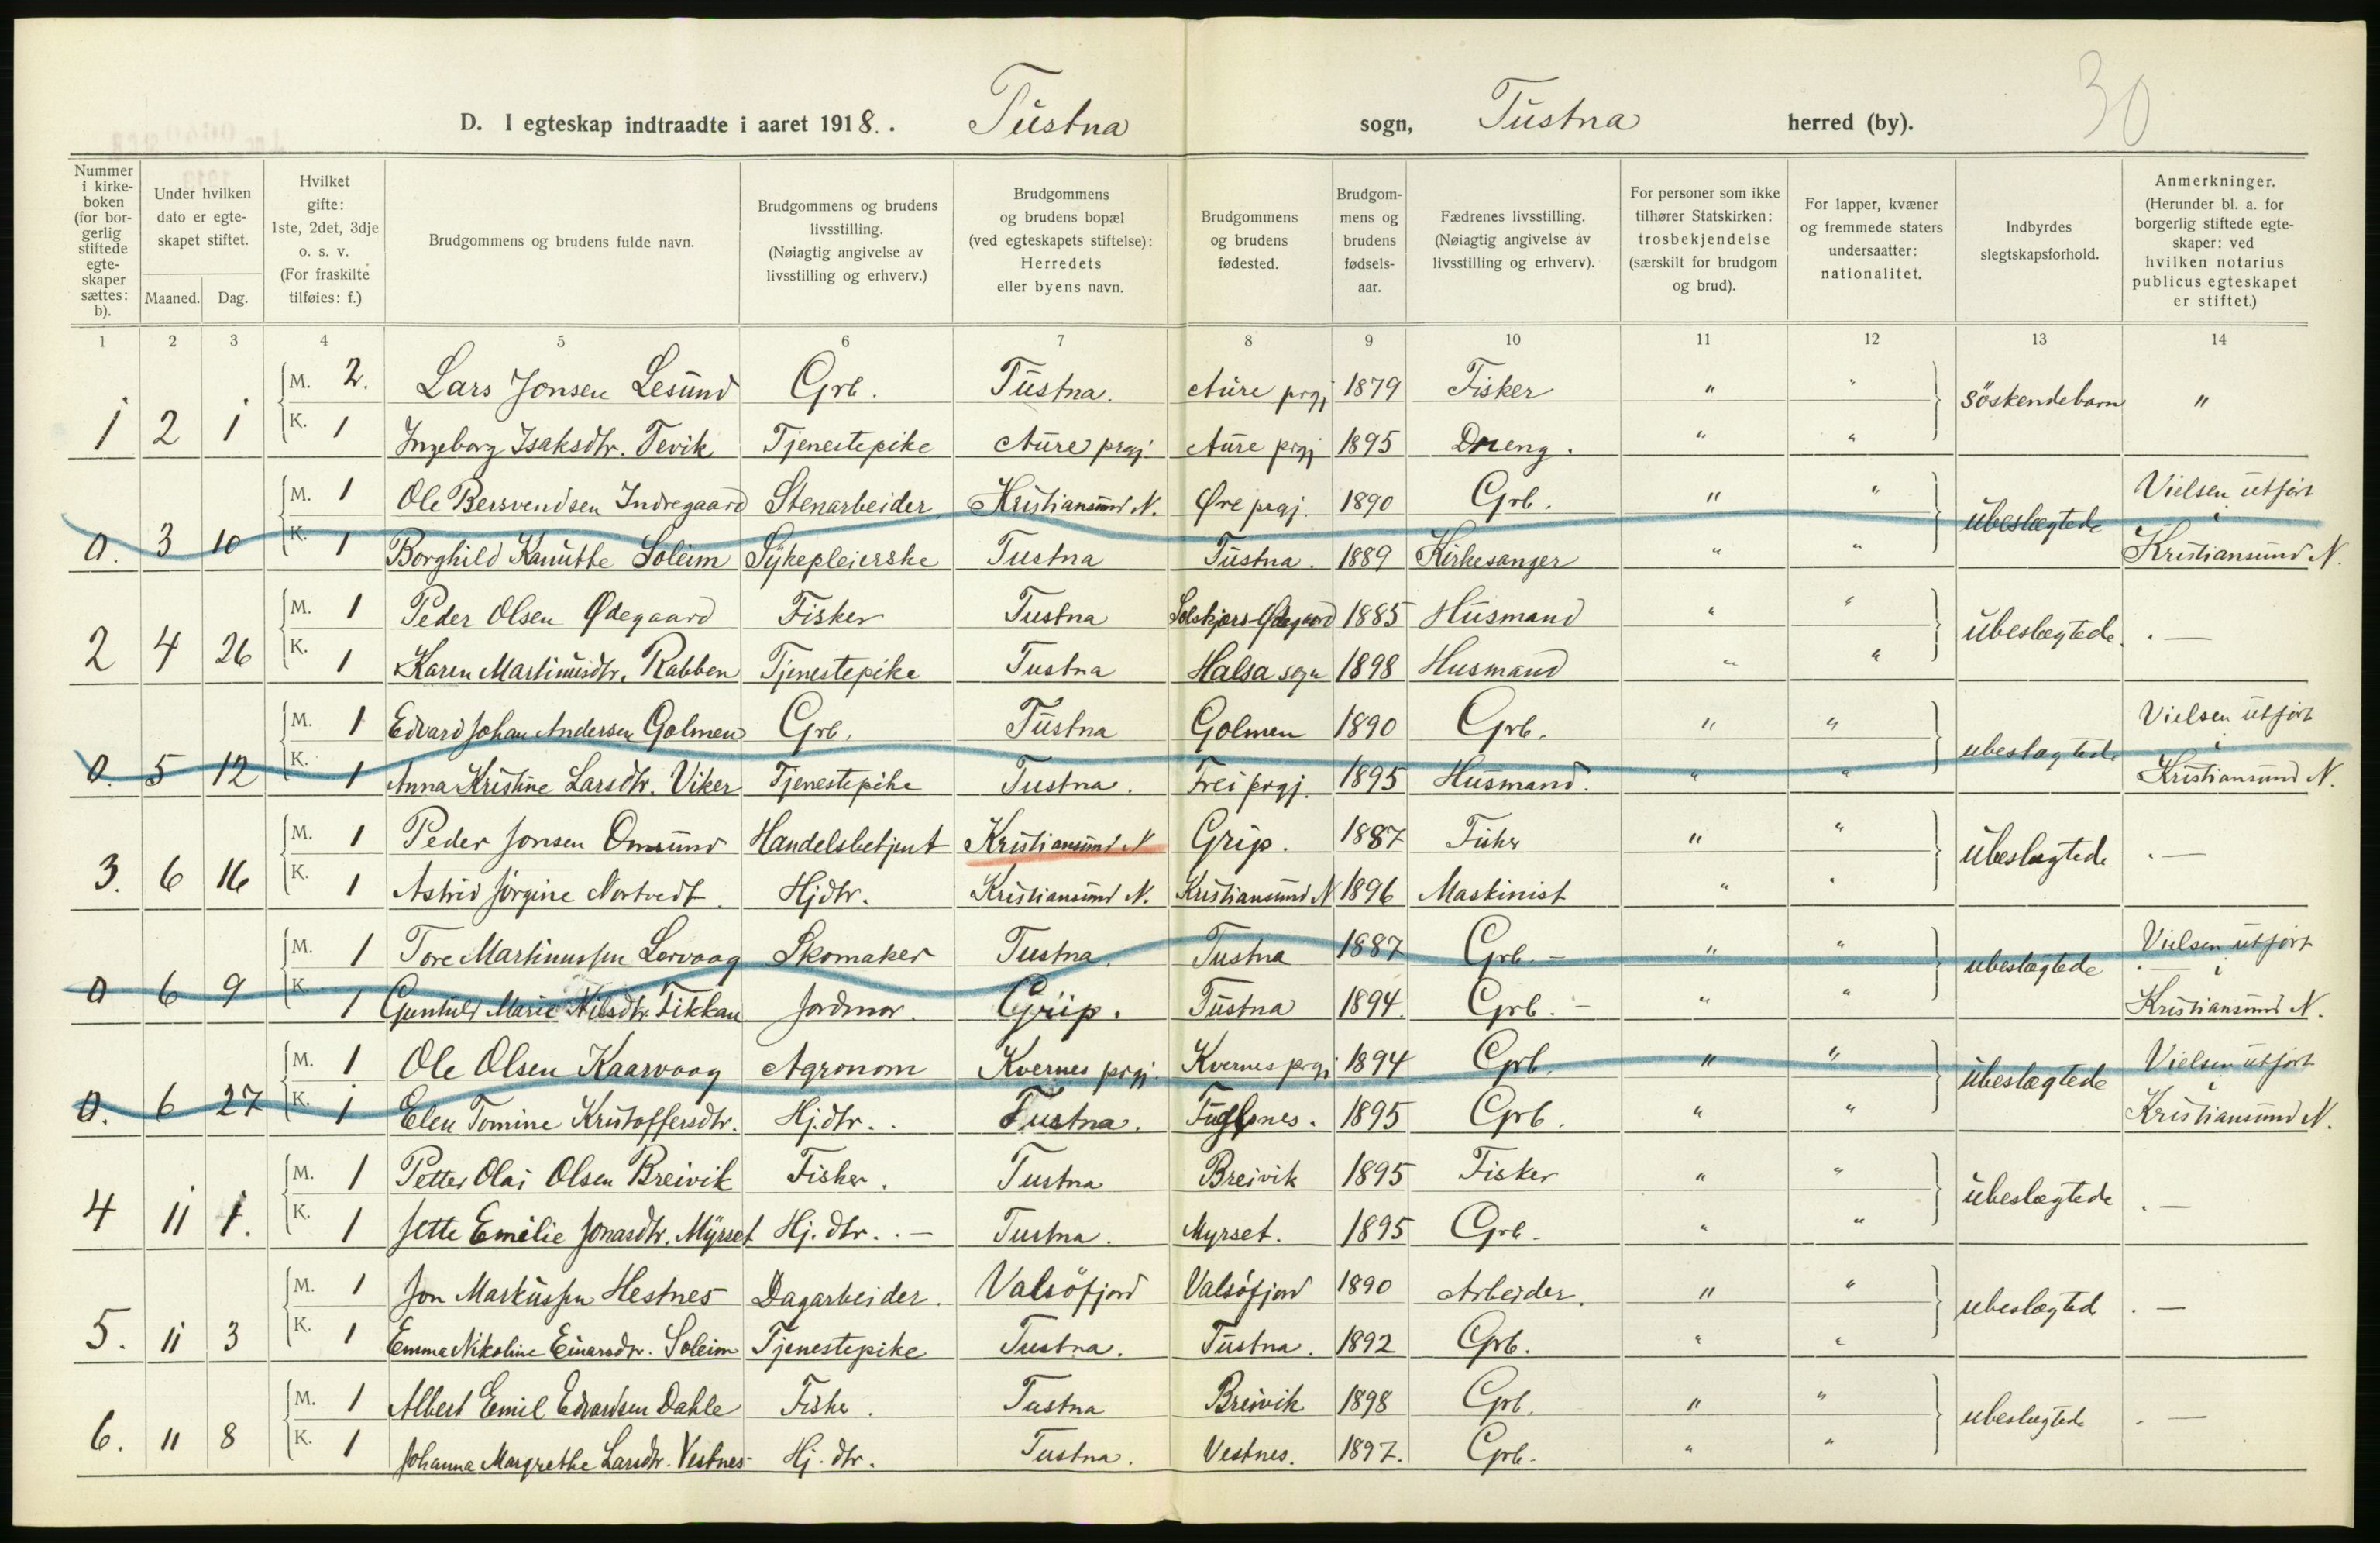 30
D. I egteskap indtraadte i aaret 1918. . Tustna sogn, Tustna herred (by).
Nummer i kirkeboken (for borgerlig stiftede egteskaper sættes: b).
Under hvilken dato er egteskapet stiftet.
Maaned. Dag.
Hvilket gifte: 1ste, 2det, 3dje o. s. v. (For fraskilte tilføies: f.)
Brudgommens og brudens fulde navn.
Brudgommens og brudens livsstilling. (Nøiagtig angivelse av livsstilling og erhverv.)
Brudgommens og brudens bopæl (ved egteskapets stiftelse): Herredets eller byens navn.
Brudgommens og brudens fødested.
Brudgommens og brudens fødselsaar.
Fædrenes livsstilling. (Nøiagtig angivelse av livsstilling og erhverv).
For personer som ikke tilhører Statskirken: trosbekjendelse (særskilt for brudgom og brud).
For lapper, kvæner og fremmede staters undersaatter: nationalitet.
Indbyrdes slegtskapsforhold.
Anmerkninger. (Herunder bl. a. for borgerlig stiftede egteskaper: ved hvilken notarius publicus egteskapet er stiftet.)
1 2 3 4 5 6 7 8 9 10 11 12 13 14
M. 2. Lars Jonsen Lesund Grb. Tustna. Aure prgj 1879 Fisker " "
1 2 1 søskendebarn "
K. 1 Ingeborg Isaksdtr. Tevik Tjenestepike Aure prgj. Aure prgj 1895 Dreng. " "
M. 1 Ole Bersvendsen Indregaard Stenarbeider Kristiansund N. Øre prgj. 1890 Grb. " " Vielsen utført
0. 3 10 ubeslegtede i
K. 1 Borghild Kanutte Soleim Sykepleierske Tustna Tustna. 1889 Kirkesanger " " Kristiansund N.
M. 1 Peder Olsen Ødegaard Fisker Tustna Solskjærs-Ødegaard 1885 Husmand " "
2 4 26 ubeslegtede. . —
K. 1 Karen Martinusdtr. Rabben Tjenestepike Tustna Halsa sogn 1898 Husmand " "
M. 1 Edvard Johan Andersen Golmen Grb. Tustna Golmen 1890 Grb. " " Vielsen utført
0. 5 12 ubeslegtede i
K. 1 Anna Kristine Larsdtr. Viker Tjenestepike Tustna. Frei prgj. 1895 Husmand. " " Kristiansund N.
M. 1 Peder Jonsen Omsund Handelsbetjent Kristiansund N Grip. 1887 Fisker " "
3. 6 16 ubeslegtede . —
K. 1 Astrid Jørgine Nortvedt. Hjdtr. Kristiansund N. Kristiansund N 1896 Maskinist " "
M. 1 Tore Martinussen Lervaag Skomaker Tustna. Tustna 1887 Grb. — " " Vielsen utført
0 6 9 ubeslegtede . — i
K. 1 Gunhild Marie Nilsdtr. Tikkau Jordmor. Grip. Tustna 1894. Grb. — " " Kristiansund N.
M. 1 Ole Olsen Kaarvaag Agronom Kvernes prgj. Kvernes prgj 1894 Grb. " " Vielsen utført
0. 6 27 ubeslegtede i
K. 1 Elen Tomine Kristoffersdtr. Hj.dtr. . Tustna. Fuglsnes. 1895 Grb. " " Kristiansund N.
M. 1 Petter Olai Olsen Breivik Fisker. Tustna Breivik 1895 Fisker " "
4 11 1. ubeslegtede . —
K. 1 Jette Emelie Jonasdtr. Myrset Hj. dtr. . — Tustna. Myrset. 1895 Grb. " "
M. 1 Jon Markussen Hestnes Dagarbeider. Valsöfjord Valsöfjord 1890 Arbeider. " "
5. 11 3 ubeslegted . —
K. 1 Emma Nikoline Einarsdtr. Soleim Tjenestepike Tustna. Tustna. 1892 Grb. " "
M. 1 Albert Emil Edvardsen Dahle Fisker. Tustna Breivik 1898 Grb. " "
6. 11 8 ubeslegtede . —
K. 1 Johanna Margrethe Larsdtr. Vestnes Hj. dtr. Tustna. Vestnes. 1897. Grb. " "